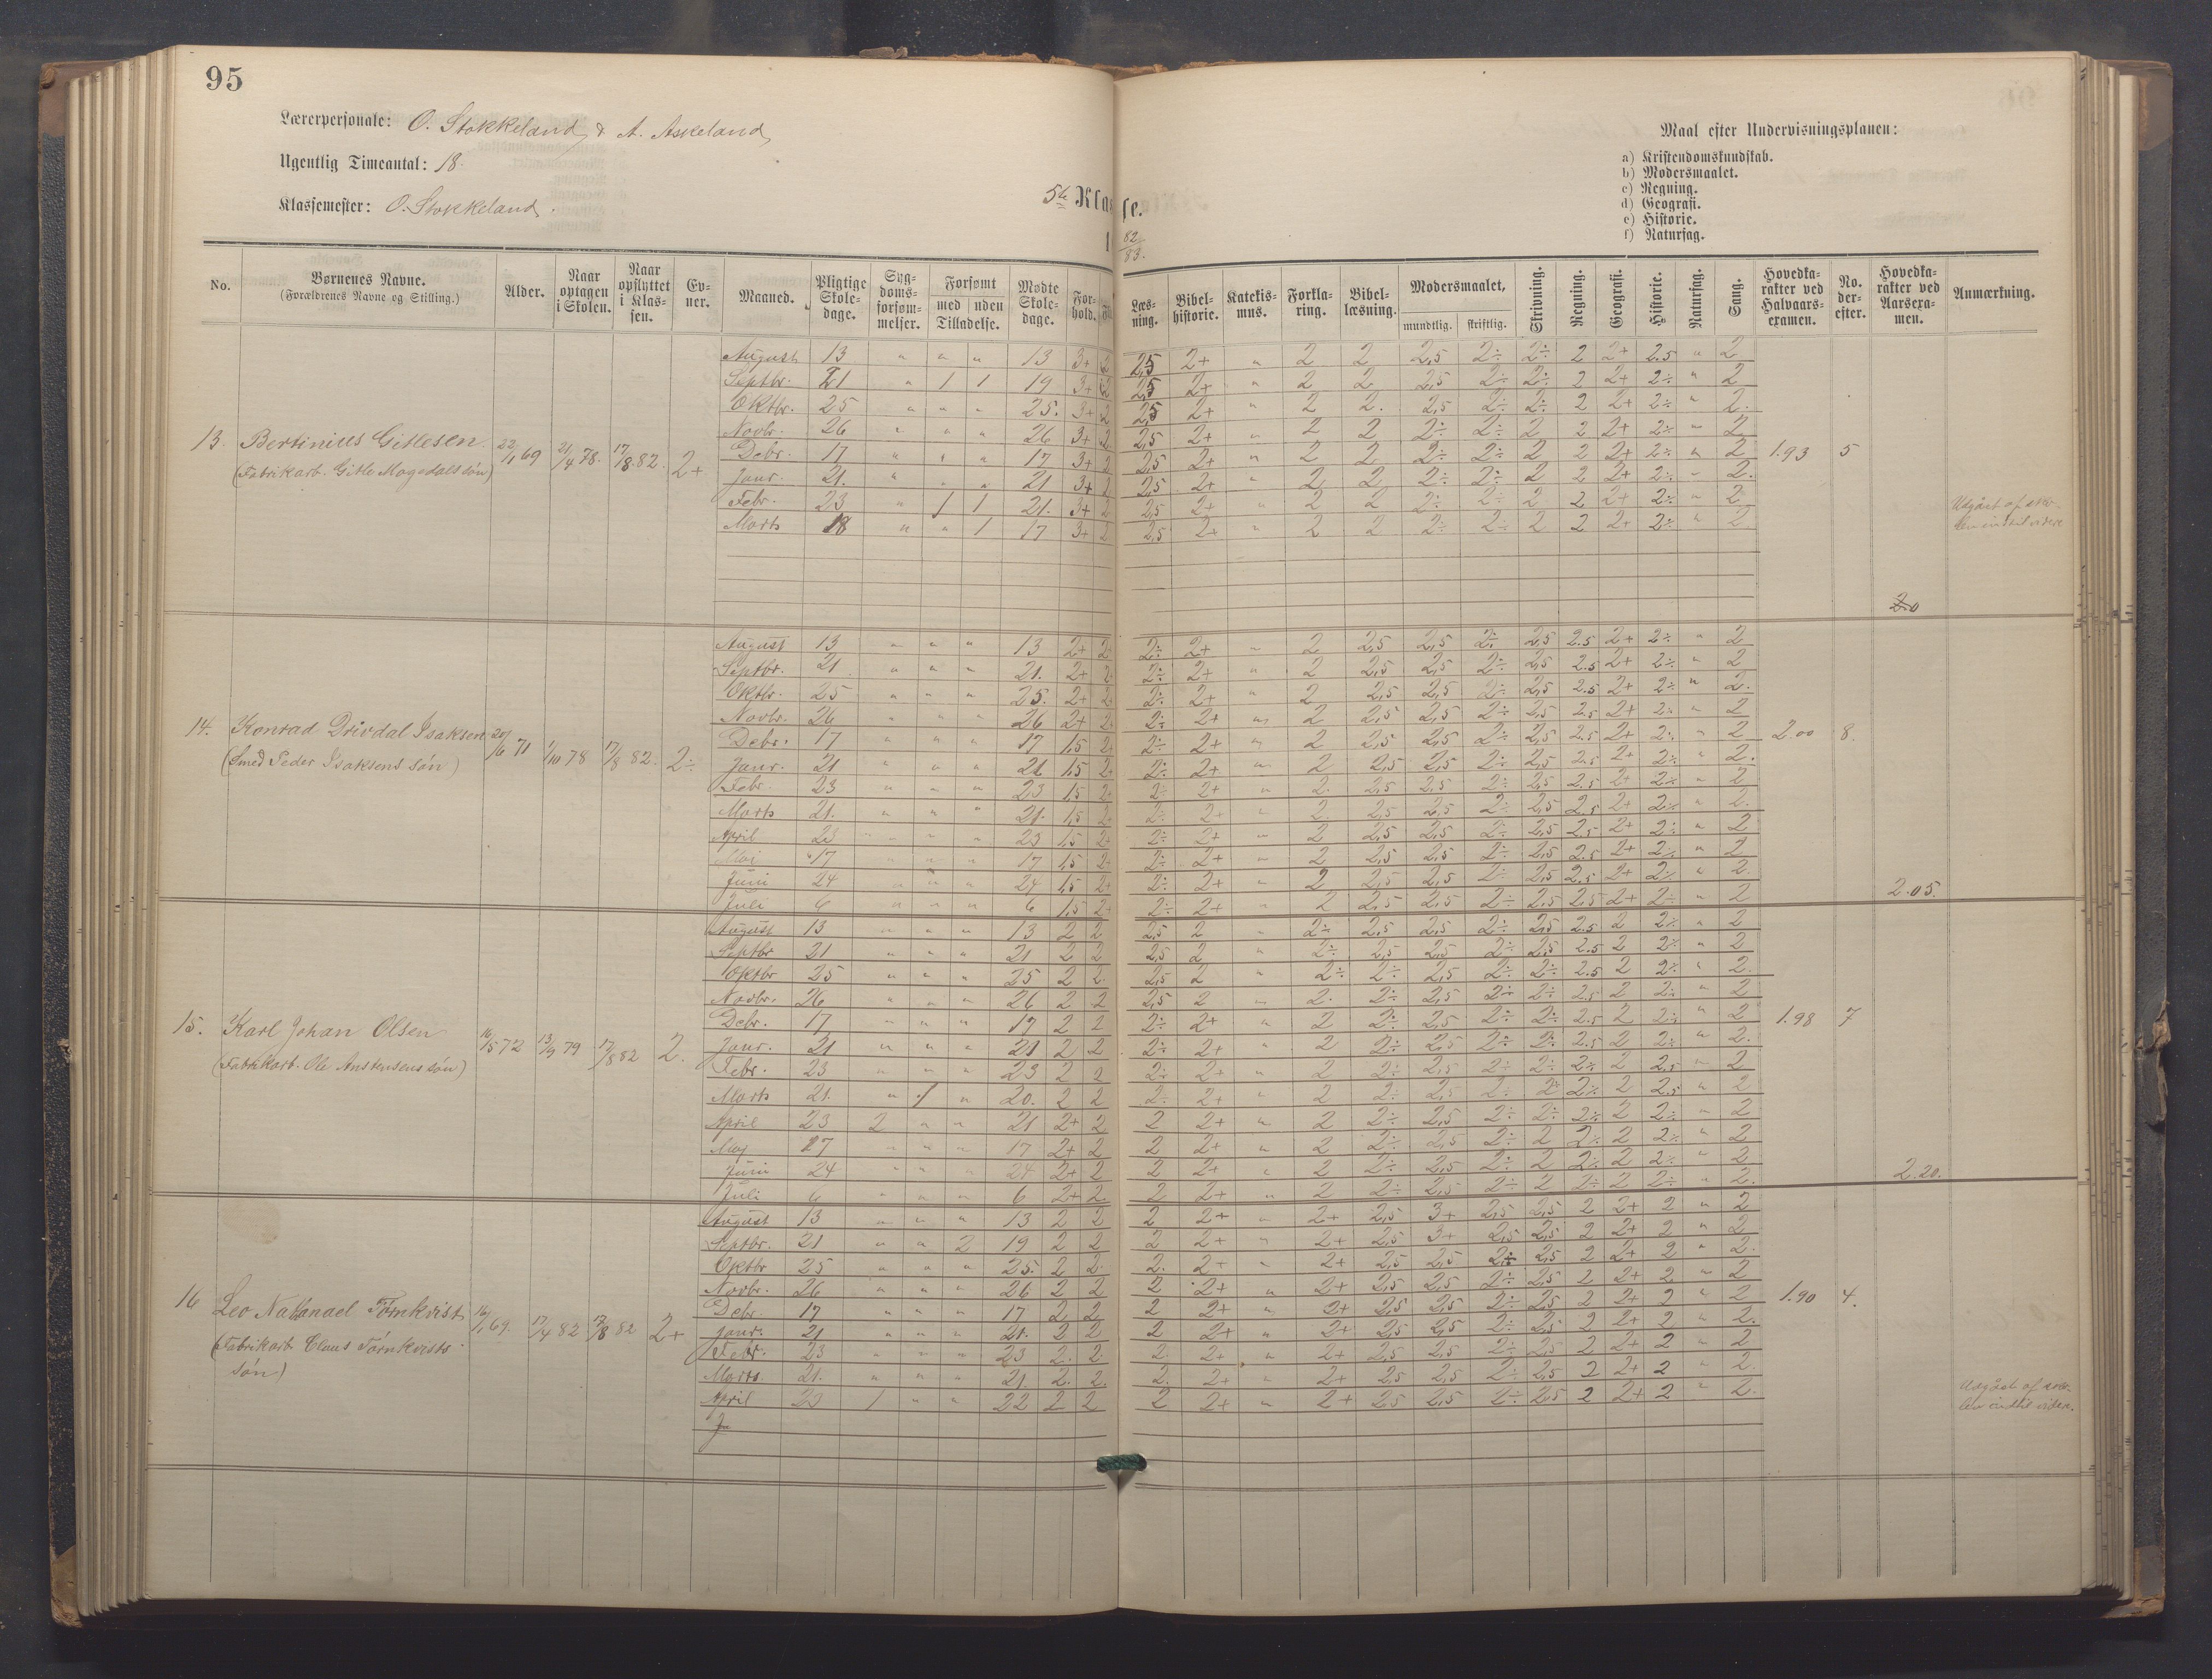 95
Lærerpersonale: O. Stokkeland & A. Askeland
Ugentlig Timeantal: 18.
Klassemester: O. Stokkeland.
5te Klasse.
82/83.
Maal efter Undervisningsplanen:
a) Kristendomskundskab.
b) Modersmaalet.
c) Regning.
d) Geografi.
e) Historie.
f) Naturfag.
No. Børnenes Navne. (Forældrenes Navne og Stilling.) Alder. Naar optagen i Skolen. Naar opflyttet i Klassen. Evner. Maaned. Pligtige Skoledage. Sygdomsforsømmelser. Forsømt med uden Tilladelse. Mødte Skoledage. Forhold. Læsning. Bibelhistorie. Katekismus. Forklaring. Bibellæsning. Modersmaalet, mundtlig. skriftlig. Skrivning. Regning. Geografi. Historie. Naturfag. Sang. Hovedkarakter ved Halvaarsexamen. No. derefter. Hovedkarakter ved Aarsexamen. Anmærkning.
13. Bertinius Gitlesen. 22/1 69 21/4 78. 17/8. 82. 2+ 1.93 5
(Fabrikarb. Gitle Mogedals søn)
August 13 " " " 13 3+ 2 2,5 2+ " 2 2 2,5 2÷ 2÷ 2 2+ 2.5 " 2
Septbr. 21 " 1 1 19 3+ 2 2,5 2+ " 2 2 2,5 2÷ 2÷ 2 2+ 2÷ " 2
Oktbr. 25 " " " 25. 3+ 2 2,5 2+ " 2 2. 2,5 2÷ 2÷ 2 2+ 2÷ " 2.
Novbr. 26 " " " 26 3+ 2 2,5 2+ " 2 2 2÷ 2÷ 2 2 2+ 2÷ " 2
Debr. 17 " " " 17 3+ 2 2,5 2+ " 2 2 2÷ 2÷ 2 2 2+ 2÷ " 2
Janr. 21. " " " 21 3+ 2 2,5 2+ " 2 2 2÷ 2÷ 2 2 2+ 2÷ " 2.
Febr. 23 " 1 1 21. 3+ 2 2,5 2+ " 2 2 2÷ 2÷ 2 2 2+ 2÷ " 2
Marts 18 " " 1 17 3+ 2 2,5 2+ " 2 2 2÷ 2÷ 2 2 2+ 2÷ " 2
Udgået af skolen indtil videre
2.0
14. Konrad Drivdal Isaksen 20/6 71 1/10 78 17/8 82. 2÷ 2.00 8.
(Smed Peder Isaksens søn)
August 13 " " " 13 2+ 2+ 2÷ 2+ " 2 2,5 2,5 2÷ 2,5 2.5 2+ 2÷ " 2
Septbr. 21 " " " 21. 2+ 2+ 2÷ 2+ " 2 2,5 2,5 2÷ 2,5 2.5 2+ 2÷ " 2
Oktbr. 25 " " " 25. 2+ 2+ 2÷ 2+ " 2 2,5 2,5 2÷ 2,5 2.5 2+ 2÷ " 2.
Novbr. 26 " " " 26 2+ 2+ 2÷ 2+ " 2 2,5 2,5 2÷ 2,5 2.5 2+ 2÷ " 2
Debr. 17 " " " 17 1,5 2+ 2÷ 2+ " 2 2,5 2,5 2÷ 2,5 2.5 2+ 2÷ " 2
Janr. 21 " " " 21 1,5 2+ 2÷ 2+ " 2 2,5 2,5 2÷ 2,5 2.5 2+ 2÷ " 2.
Febr. 23 " " " 23 1,5 2+ 2÷ 2+ " 2. 2,5 2,5 2÷ 2,5 2,5 2+ 2÷ " 2
Marts 21. " " " 21. 1,5 2+ 2÷ 2+ " 2. 2,5 2,5 2÷ 2,5 2.5 2+ 2÷ " 2.
April 23 " " " 23 1,5 2+ 2÷ 2+ " 2 2,5 2,5 2÷ 2,5 2.5 2+ 2÷ " 2
Mai 17 " " " 17 1,5 2+ 2÷ 2+ " 2 2,5 2,5 2÷ 2,5 2.5 2+ 2÷ " 2
Juni 24 " " " 24 1,5 2+ 2÷ 2+ " 2 2,5 2,5 2÷ 2,5 2.5 2+ 2÷ " 2.
Juli 6 " " " 6 1,5 2+ 2÷ 2+ " 2 2,5 2,5 2÷ 2,5 2,5 2+ 2÷ " 2
2.05.
15. Karl Johan Olsen 16/5 72 13/9 79 17/8 82 2. 1.98 7
(Fabrikarb. Ole Anstensens søn)
August 13 " " " 13 2 2 2,5 2 " 2÷ 2,5 2,5 2÷ 2,5 2.5 2 2÷ " 2
Septbr 21 " " " 21 2 2 2,5 2 " 2÷ 2,5 2,5 2÷ 2,5 2.5 2 2÷ " 2
Oktbr 25 " " " 25 2 2 2,5 2 " 2÷ 2÷ 2,5 2÷ 2÷ 2.5 2 2÷ " 2.
Novbr. 26 " " " 26 2 2 2,5 2 " 2. 2÷ 2,5 2÷ 2÷ 2.5 2 2÷ " 2
Debr. 17 " " " 17 2 2 2÷ 2+ " 2 2÷ 2,5 2÷ 2÷ 2.5 2 2÷ " 2
Janr. 21 " " " 21 2 2 2÷ 2+ " 2 2÷ 2,5 2÷ 2÷ 2.5 2 2÷ " 2.
Febr. 23 " " " 23 2 2 2÷ 2+ " 2 2÷ 2,5 2÷ 2÷ 2÷ 2 2.5 " 2
Marts 21. " 1 " 20. 2 2 2÷ 2+ " 2 2÷ 2,5 2÷ 2+ 2÷ 2 2.5 " 2
April 23 2 " " 21 2+ 2 2 2+ " 2 2÷ 2,5 2÷ 2÷ 2÷ 2 2÷ " 2
Maj 17 " " " 17 2+ 2 2 2+ " 2 2÷ 2,5 2÷ 2 2÷ 2 2÷ " 2
Juni 24 " " " 24 2+ 2 2 2+ " 2 2÷ 2,5 2÷ 2 2÷ 2 2÷ " 2
Juli 6 " " " 6 2+ 2. 2 2+ " 2 2÷ 2,5 2÷ 2 2÷ 2 2÷ " 2.
2.20.
16 Leo Natanael Törnkvist 16/1 69. 17/4 82 17/8 82 2+ 1.90 4.
(Fabrikarb. Claus Törnkvists søn)
August 13 " " " 13 2 2 2 2+ " 2+ 2,5 3+ 2,5 2,5 2 2+ 2 " 2
Septbr. 21 " " 2 19 2 2 2 2+ " 2+ 2,5 3+ 2,5 2,5 2 2+ 2 " 2
Oktbr 25 " " " 25. 2 2 2. 2+ " 2+ 2,5 2,5 2÷ 2,5 2 2+ 2 " 2.
Novbr. 26 " " " 26 2 2 2 2+ " 2+ 2,5 2,5 2÷ 2,5 2 2+ 2 " 2
Debr. 17 " " " 17 2 2 2 2+ " 2+ 2,5 2,5 2÷ 2,5 2 2+ 2 " 2
Janr. 21 " " " 21. 2 2 2 2+ " 2+ 2,5 2,5 2÷ 2,5 2 2+ 2 " 2.
Febr. 23 " " " 23 2. 2 2. 2+ " 2+ 2,5 2,5 2÷ 2,5 2 2+ 2 " 2
Marts. 21. " " " 21. 2. 2. 2. 2+ " 2+ 2,5 2,5 2÷ 2,5 2 2+ 2 " 2.
April 23 1 " " 22 2 2 2 2+ " 2+ 2,5 2,5 2÷ 2,5 2 2+ 2 " 2.
Udgået af skolen indtil videre.